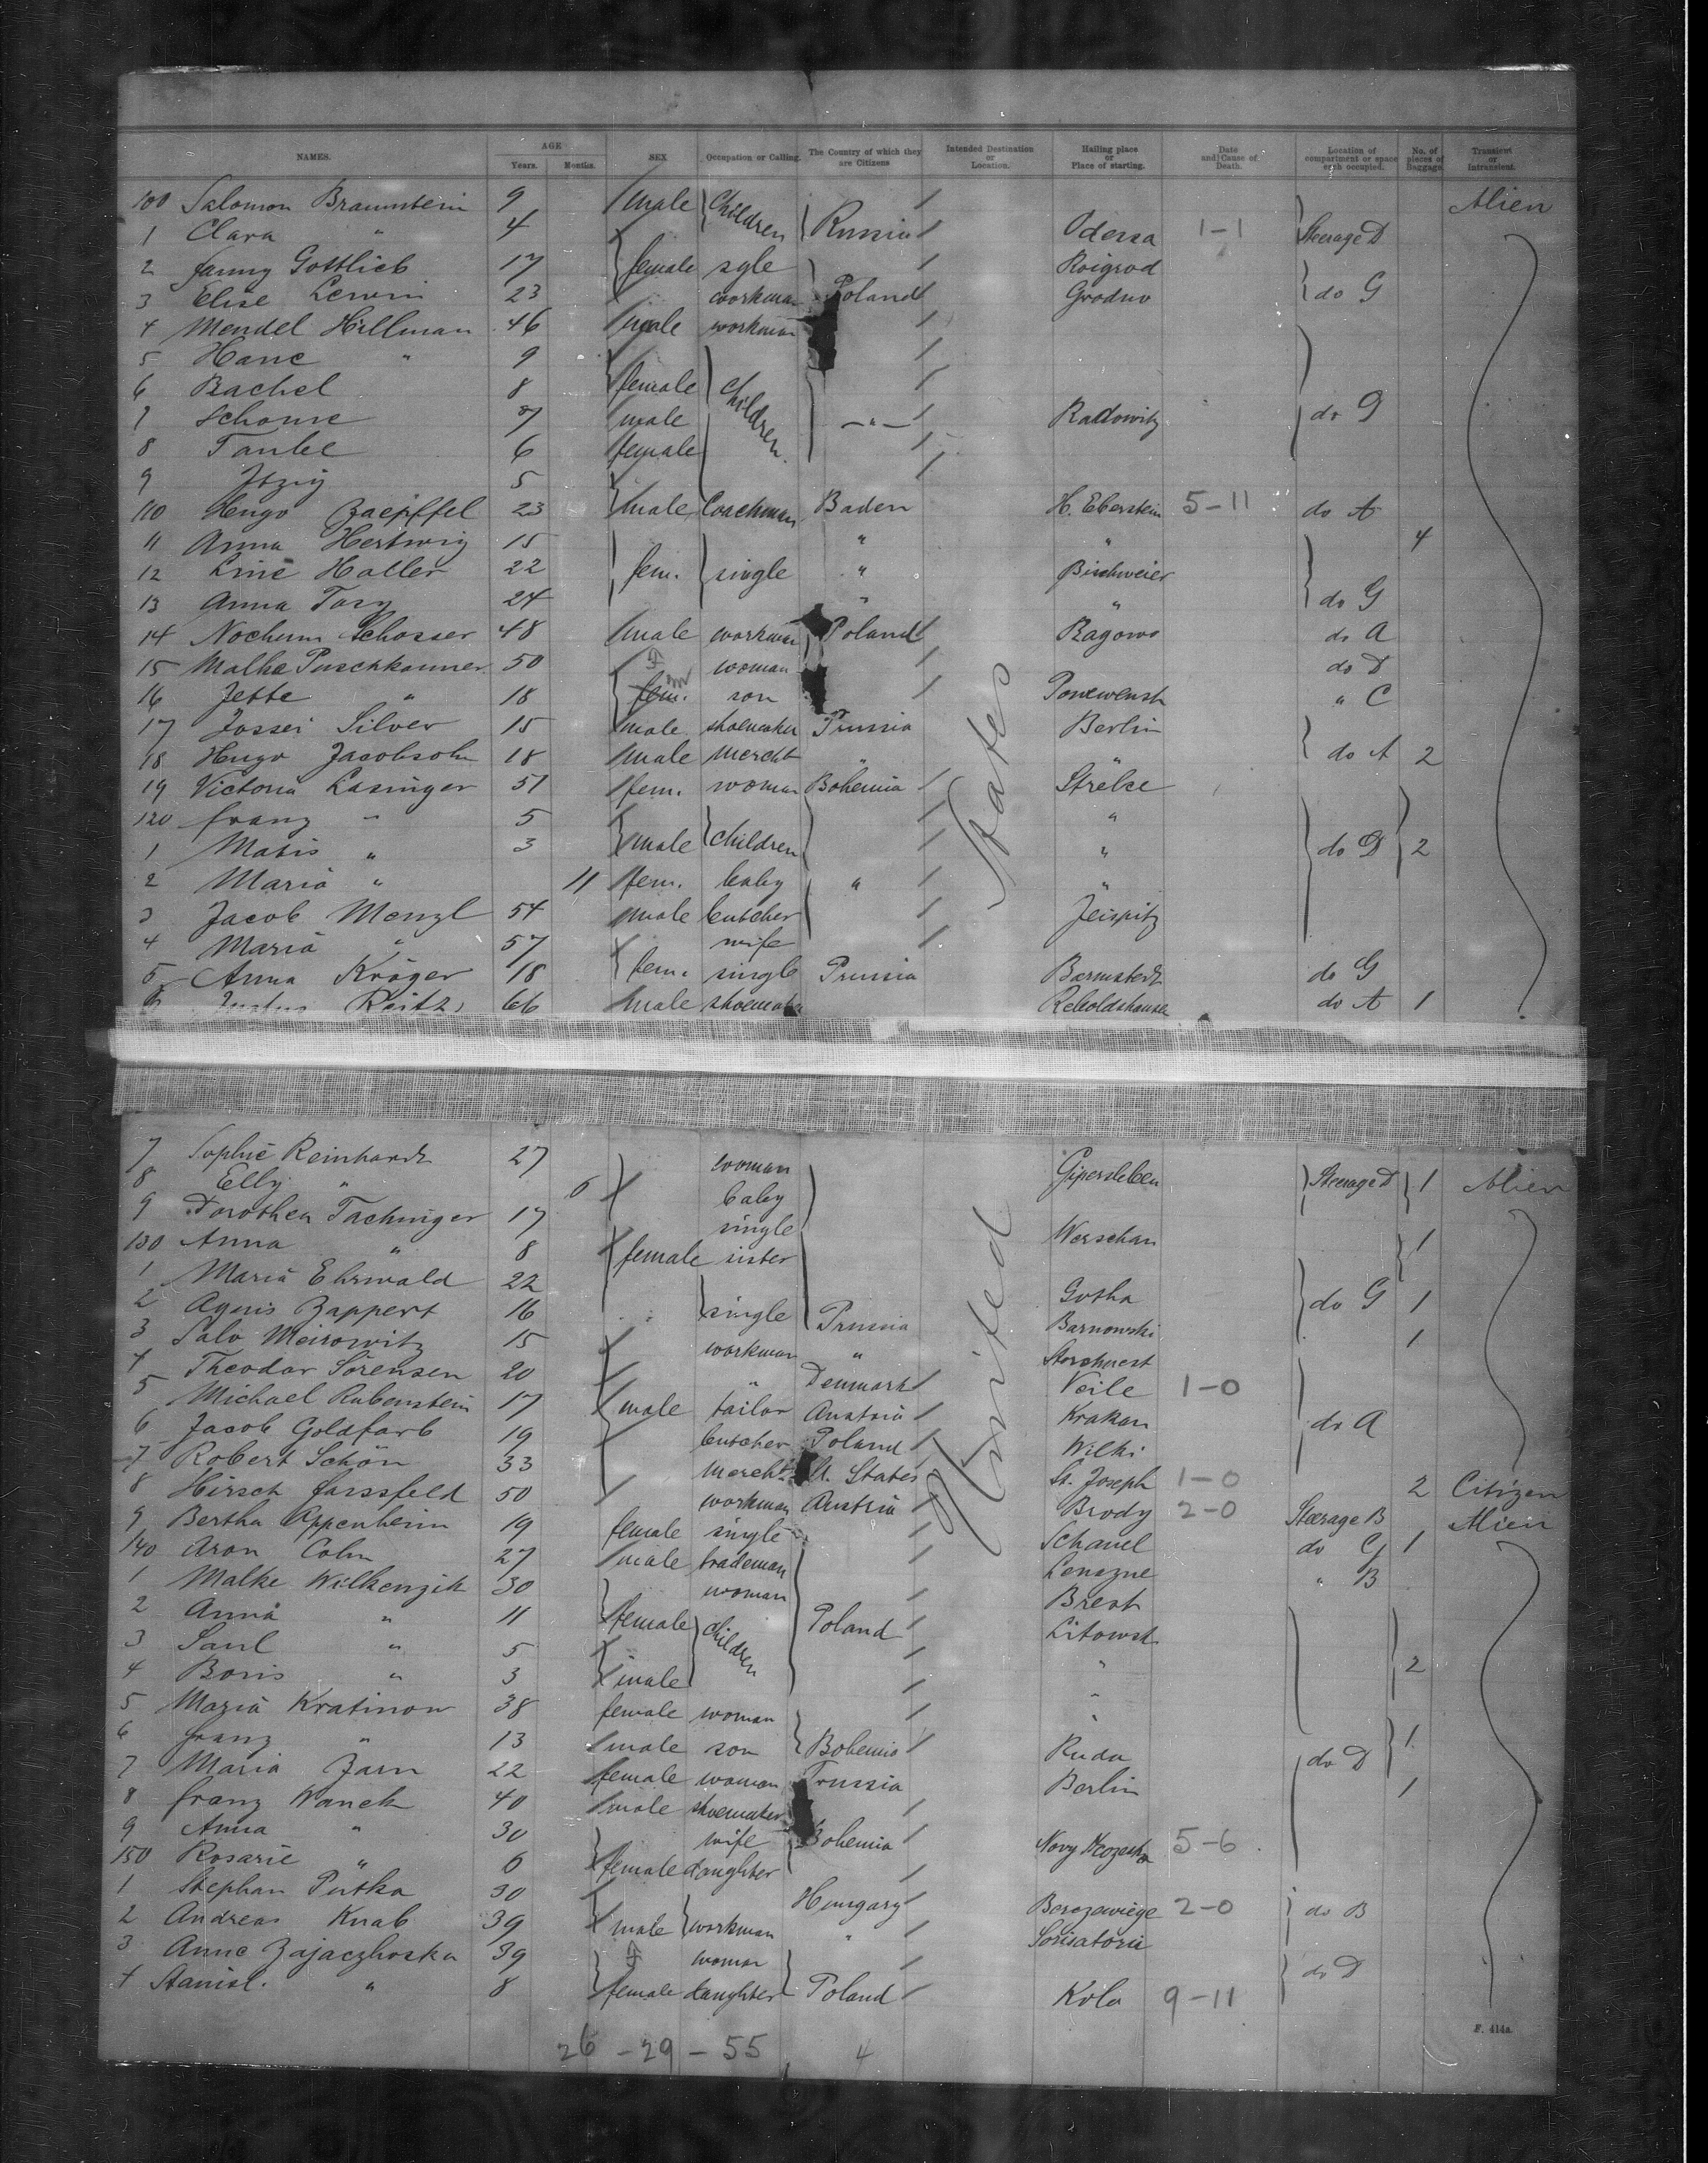 NAMES. AGE Years. Months. SEX Occupation or Calling. The Country of which they are Citizens Intended Destination or Location. Hailing place or Place of starting. Date and Cause of Death. Location of compartment or space each occupied. No. of pieces of Baggage Transient or Intransient.
100 Salomon Braunstein 9 male Children Russia Alien
1 Clara " 4 Odessa 1-1 Steerage D
2 Fanny Gottlieb 17 female sgle Roigrod
3 Elise Lewin 23 workman Poland Grodno do G
4 Mendel Hillman 46 male workman
5 Hane " 9
6 Rachel 8 female Children
7 Schome 7 male -"- Radowitz do D
8 Taube 6 female
9 Itzig 5
110 Hugo Zaepffel 23 male Coachman Baden H. Eberstein 5-11 do A
11 Anna Hertwig 15 " " 4
12 Line Haller 22 fem. single " Bischweier
13 Anna Tory 24 " " do G
14 Nochum Schosser 48 male workman Poland Ragowo do A
15 Malke Puschkanner 50 woman do D
16 Jette " 18 fem. m son Ponewensh " C
17 Jossei Silver 15 male shoemaker Prussia Berlin
18 Hugo Jacobsohn 18 male mercht " do A 2
19 Victoria Lasinger 51 fem. woman Bohemia Strelse
120 Franz " 5 "
1 Matis " 3 male children " do D 2
2 Maria " 11 fem. baby " "
3 Jacob Menzl 54 male butcher Jeispitz
4 Maria " 57 wife
5 Anna Kröger 18 fem. single Prussia Barmstedt do G
6 Justus Reitz 66 male shoemaker Reboldshausen do A 1
7 Sophie Reinhardt 27 woman Gipersleben Steerage D 1 Alien
8 Elly " 6 baby
9 Dorothea Tachinger 17 single Werschau
130 Anna " 8 female sister 1
1 Maria Ehrwald 22 Gotha
2 Agnis Zappert 16 single Prussia Barnowski do G 1
3 Salo Meirowitz 15 workman " Storchnest 1
4 Theodor Sörensen 20 " Denmark Veile 1-0
5 Michael Rubenstein 17 male tailor Austria Krakau do A
6 Jacob Goldfarb 19 butcher Poland Wilki
7 Robert Schön 33 Mercht U. States St. Joseph 1-0 2 Citizen
8 Hirsch Farssfeld 50 workman Austria Brody 2-0 Steerage B Alien
9 Bertha Appenheim 19 female single Schauel do G 1
140 Aron Cohn 27 male trademan Lenozne " B
1 Malke Wilkenzik 30 woman Brest
2 Anna " 11 female children Poland Litowsk
3 Saul " 5 " 2
4 Boris " 3 male "
5 Maria Kratinow 38 female woman "
6 Franz " 13 male son Bohemia Ruda do D 1
7 Maria Zarn 22 female woman Prussia Berlin 1
8 Franz Wanek 40 male shoemaker
9 Anna " 30 wife Bohemia Novy 5-6
150 Rosarie " 6 female daughter
1 Stephan Putka 30 Hungary Berczewiege 2-0 do B
2 Andreas Knab 39 male workman " Sorisatorie
3 Anne Zajaczkoska 39 F woman do D
4 Stanisl. " 8 female daughter Poland Kolo 9-11
United States
F. 414a.
26 - 29 - 55 4